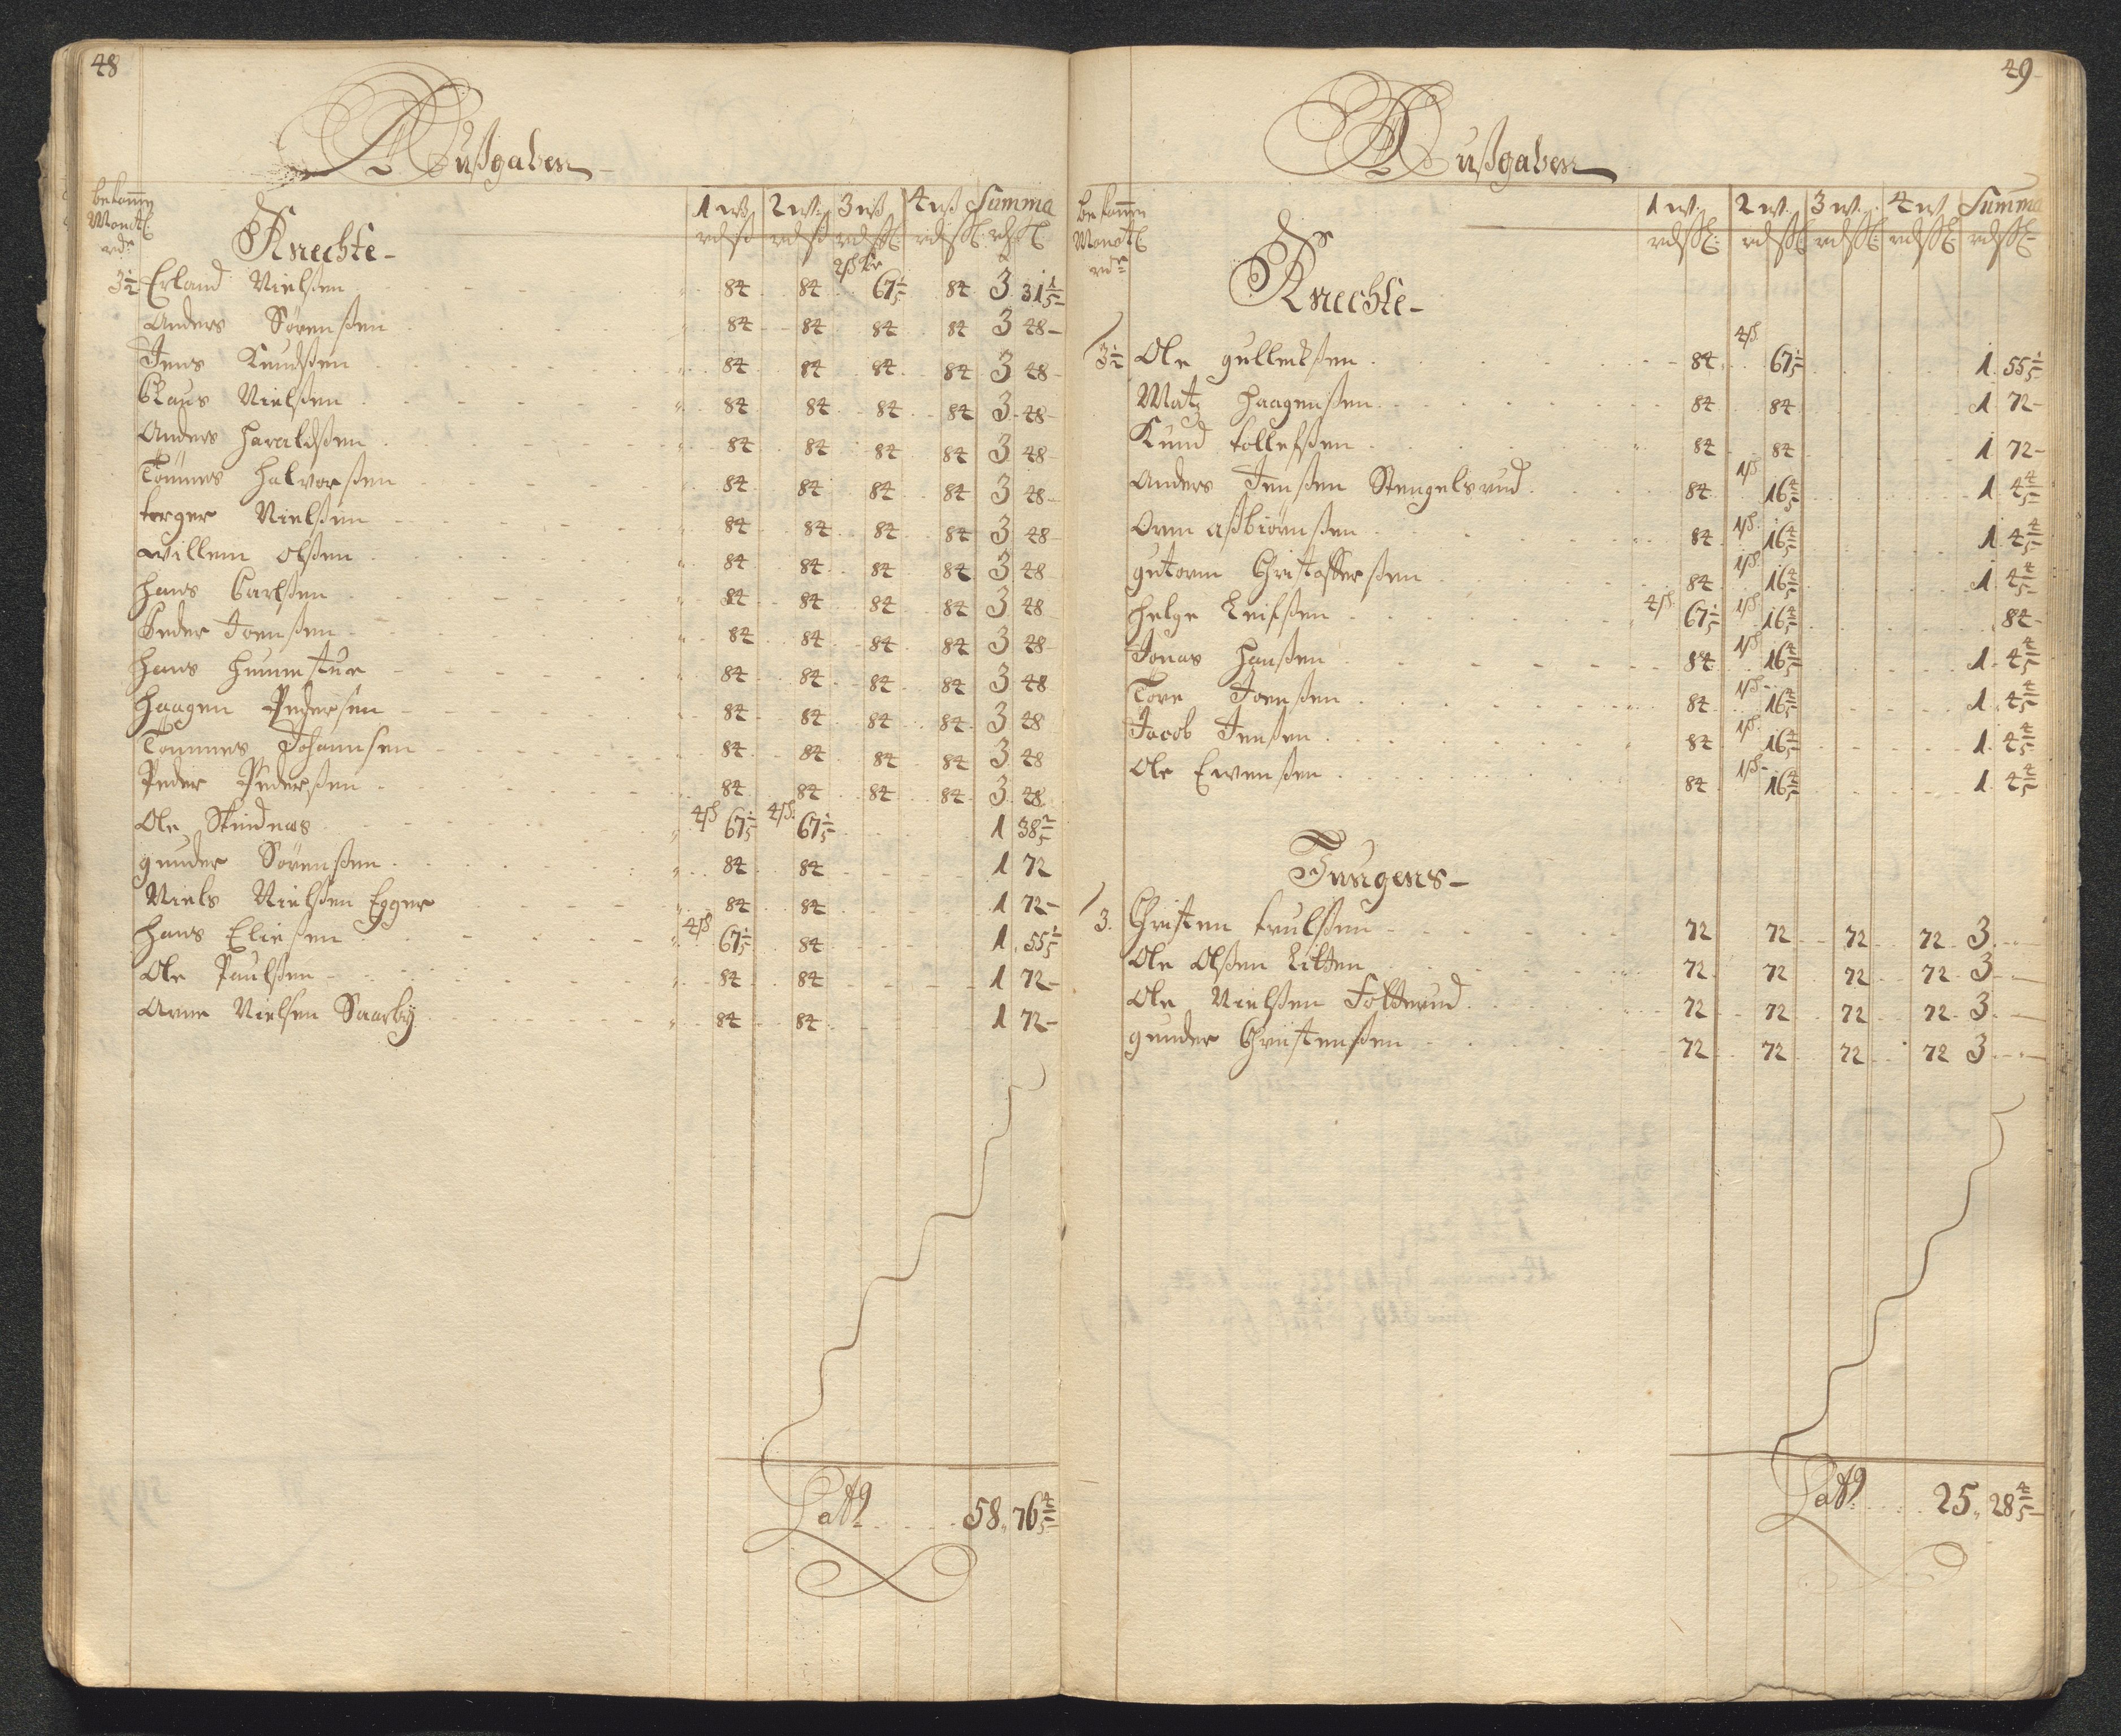 48
Außgaben
bekomn
Monatl.
rdr
1 w 2 w. 3 w 4 w Summa
Knechte
rdß rdß rdßl. rdßl. rdßl.
2ß Kr
3½ Erland Nielßen 84 84 67 1/5 84 3 31 1/5
Anders Sörenßen 84 84 84 84 3 48
Jens Knudßen 84 84 84 84 3 48
Claus Nielßen 84 84 84 84 3 48
Anders Haraldßen 84 84 84 84 3 48
Tönnes Halvorßen 84 84 84 84 3 48
torger Nielßen 84 84 84 84 3 48
willem olßen 84 84 84 84 3 48
Hans Carlßen 84 84 84 84 3 48
Peder Joenßen 84 84 84 84 3 48
Hans Hummetue 84 84 84 84 3 48
Haagen Pedersen 84 84 84 84 3 48
Tönnes Johannsen 84 84 84 84 3 48
Peder Pederßen 84 84 84 84 3 48
Ole 4ß 67 1/5 4ß 67 1/5 1 38 2/5
gunder Sörenßen 84 84 1 72
Niels Nielßen Egger 84 84 1 72
Hans Eließen 4ß 67 1/5 84 1 55 1/5
Ole Paulßen 84 84 1 72
Arne Nielsen Saarby 84 84 1 72
Latt 58 76 4/5
49
Außgaben
bekomn
Monatl
rdr
1 w. 2 w. 3 w. 4 w Summa
rdßl. rdßl rdßl rdßl rdßl
Knechte
3½ Ole gulleckßen 84 4ß 67 1/5 1 55 1/5
Matz Haagenßen 84 84 1 72
Knud tollefßen 84 84 1 72
Anders Jenßen Stengelsrud 84 1ß 16 4/5 1 4 4/5
Orm aßbiörnßen 84 1ß 16 4/5 1 4 4/5
gutorm Christofferßen 84 1ß 16 4/5 1 4 4/5
Helge Leifßen 4ß 67 1/5 1ß 16 4/5 84
Jonas Hanßen 84 1ß 16 4/5 1 4 4/5
Tore Joenßen 84 1ß 16 4/5 1 4 4/5
Jacob Jenßen 84 1ß 16 4/5 1 4 4/5
Ole Ewenßen 84 1ß 16 4/5 1 4 4/5
Jungens
3. Christen trulßen 72 72 72 72 3
Ole Olßen Litten 72 72 72 72 3
Ole Nielßen Folterud 72 72 72 72 3
gunder Christenßen 72 72 72 72 3
Latt 25 28 4/5